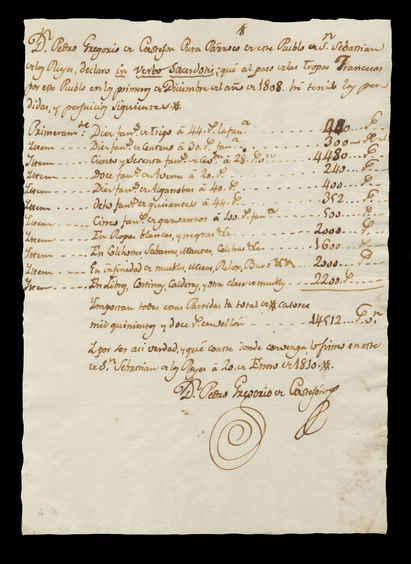 Dn. Pedro Gregorio de Cura Párroco de este Pueblo de Sn. Sebastian
de los Reyes, declaro in Verbo Sacerdotis, que al paso de las Tropas Francesas
por este Pueblo en los primeros de Diciembre del año de 1808. he tenido las per-
didas, y perjuicios siguientes.
Primeramte. Diez fans. de Trigo á 44. rs. la fana. 440
Ittem Diez fans. de Centeno á 30. rs. fana. 300
Ittem Ciento y Sesenta fans. de á 28. rs. 4480
Ittem doce fans. de Avena á 20. rs. 240
Ittem Diez fans. de Algarrobas á 40. rs. 400
Ittem Ocho fans. de á 44. rs. 352
Ittem Cinco fans. de garvanzos á 100. rs. fana. 500
Ittem En Ropas blancas, y negras 2000
Ittem En Colchones Sabanas, Mantas, Colchas 1600
Ittem En infinidad de muebles, Mesas, 2000
Ittem En Cortinas, Calderos, y otra clase de muebles 2200
Importan todas estas Partidas la total de catorce
mil quinientos y doce rs. de vellon 14512
Y por ser asi verdad, y que conste donde convenga lo firmo en este
de Sn. Sebastian de los Reyes á 20. de Enero de 1810.
Dn. Pedro Gregorio de